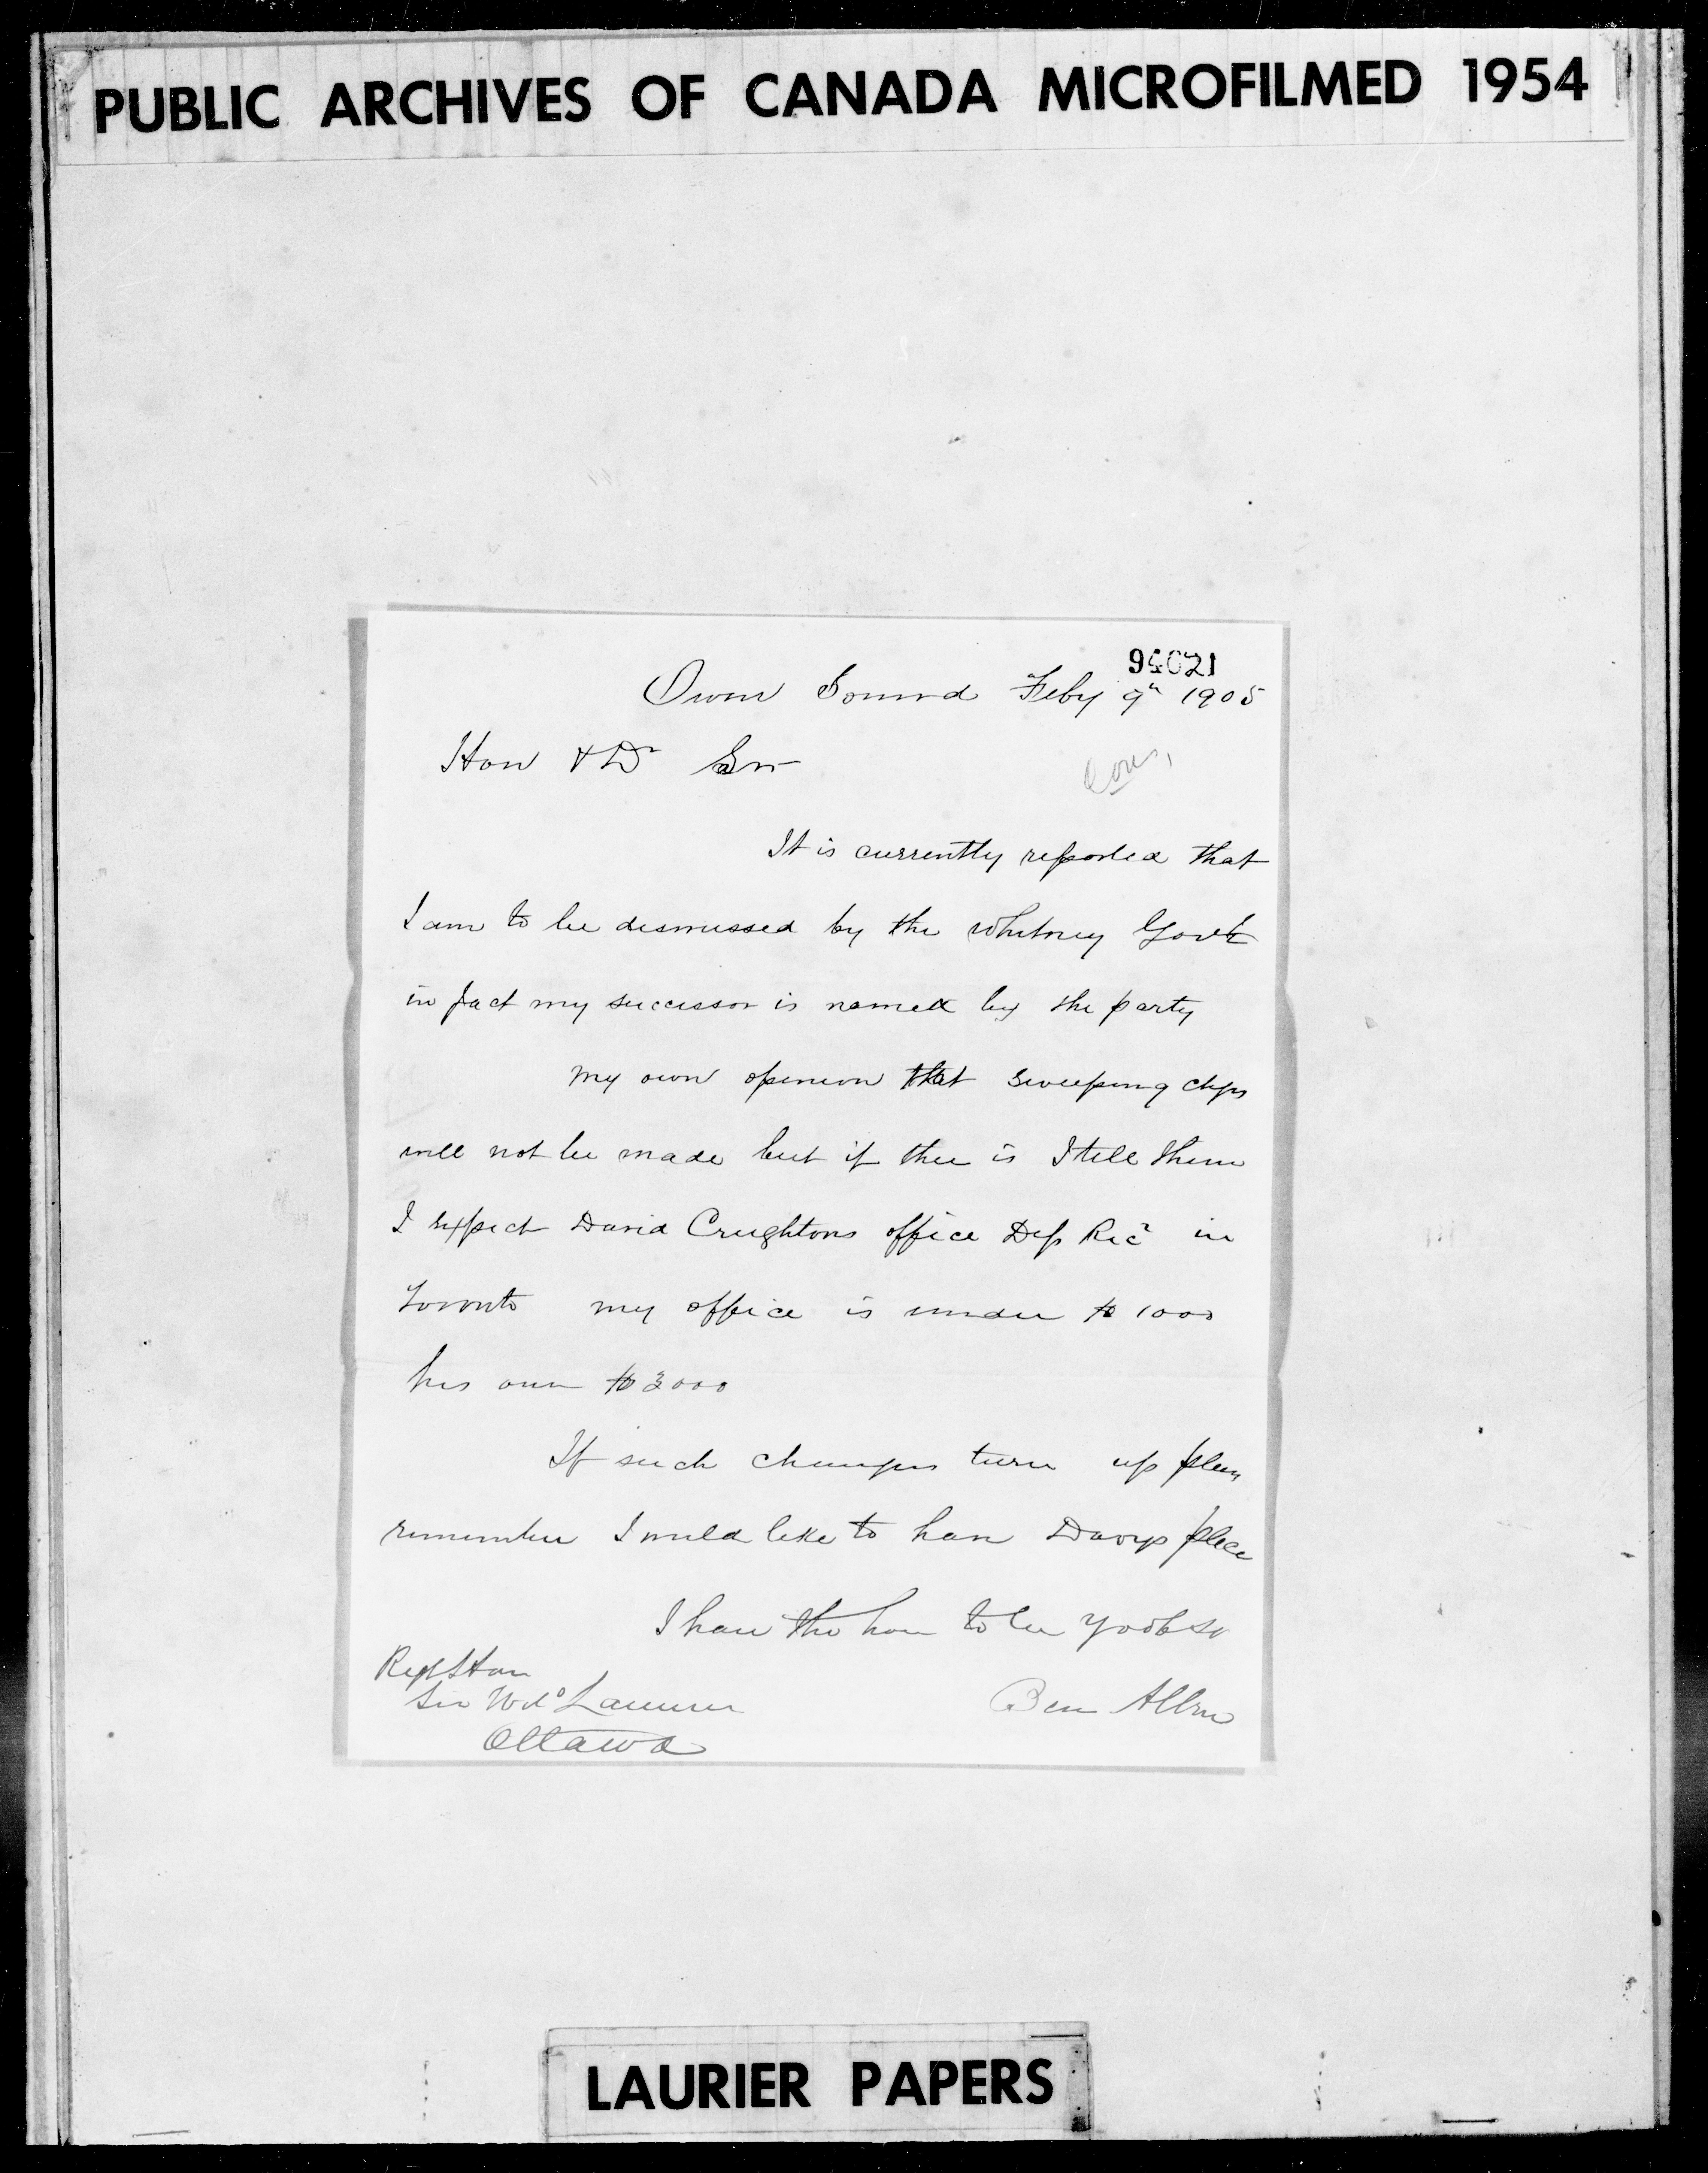 PUBLIC ARCHIVES OF CANADA MICROFILMED 1954
94021
Owen Sound Feby 9th 1905
Hon & Dr Sir
It is currently reported that
I am to be dismissed by the Whitney Govt
in fact my successor is named by the party
My own opinion that sweeping chgs
will not be made but if thee is I tell them
I expect David Creightons office Dep Rec in
Toronto my office is under $1000
his over $3000
If such changes turn up please
remember I would like to have Davys place
I have the hon to be
Right Hon
Sir Wd Laurier
Ottawa
Ben Allen
LAURIER PAPERS